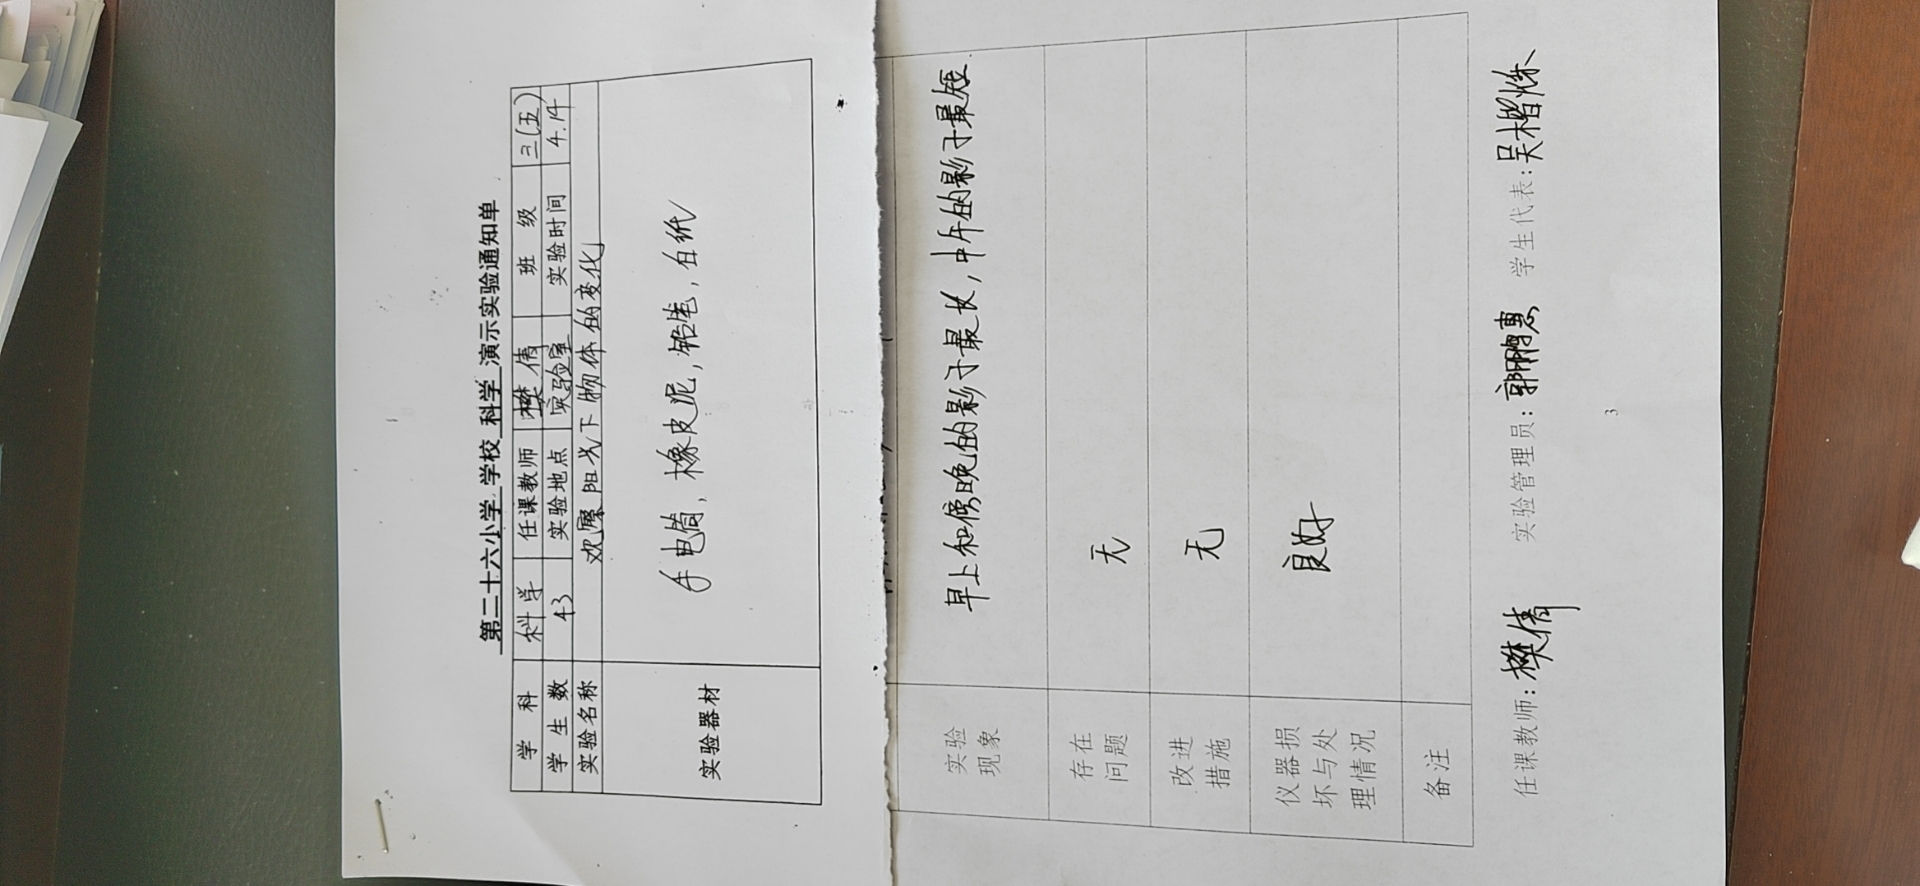 第二十六小学 学校 科学 演示实验通知单
学 科 科学 任课教师 樊倩 班 级 三(五)
学 生 数 43 实验地点 实验室 实验时间 4.14
实验名称 观察阳光下物体的变化
实验器材 手电筒，橡皮泥，铅笔，白纸
实验现象 早上和傍晚的影子最长，中午的影子最短
存在问题 无
改进措施 无
仪器损坏与处理情况 良好
备注
任课教师：樊倩 实验管理员：郭 惠 学生代表：吴
3